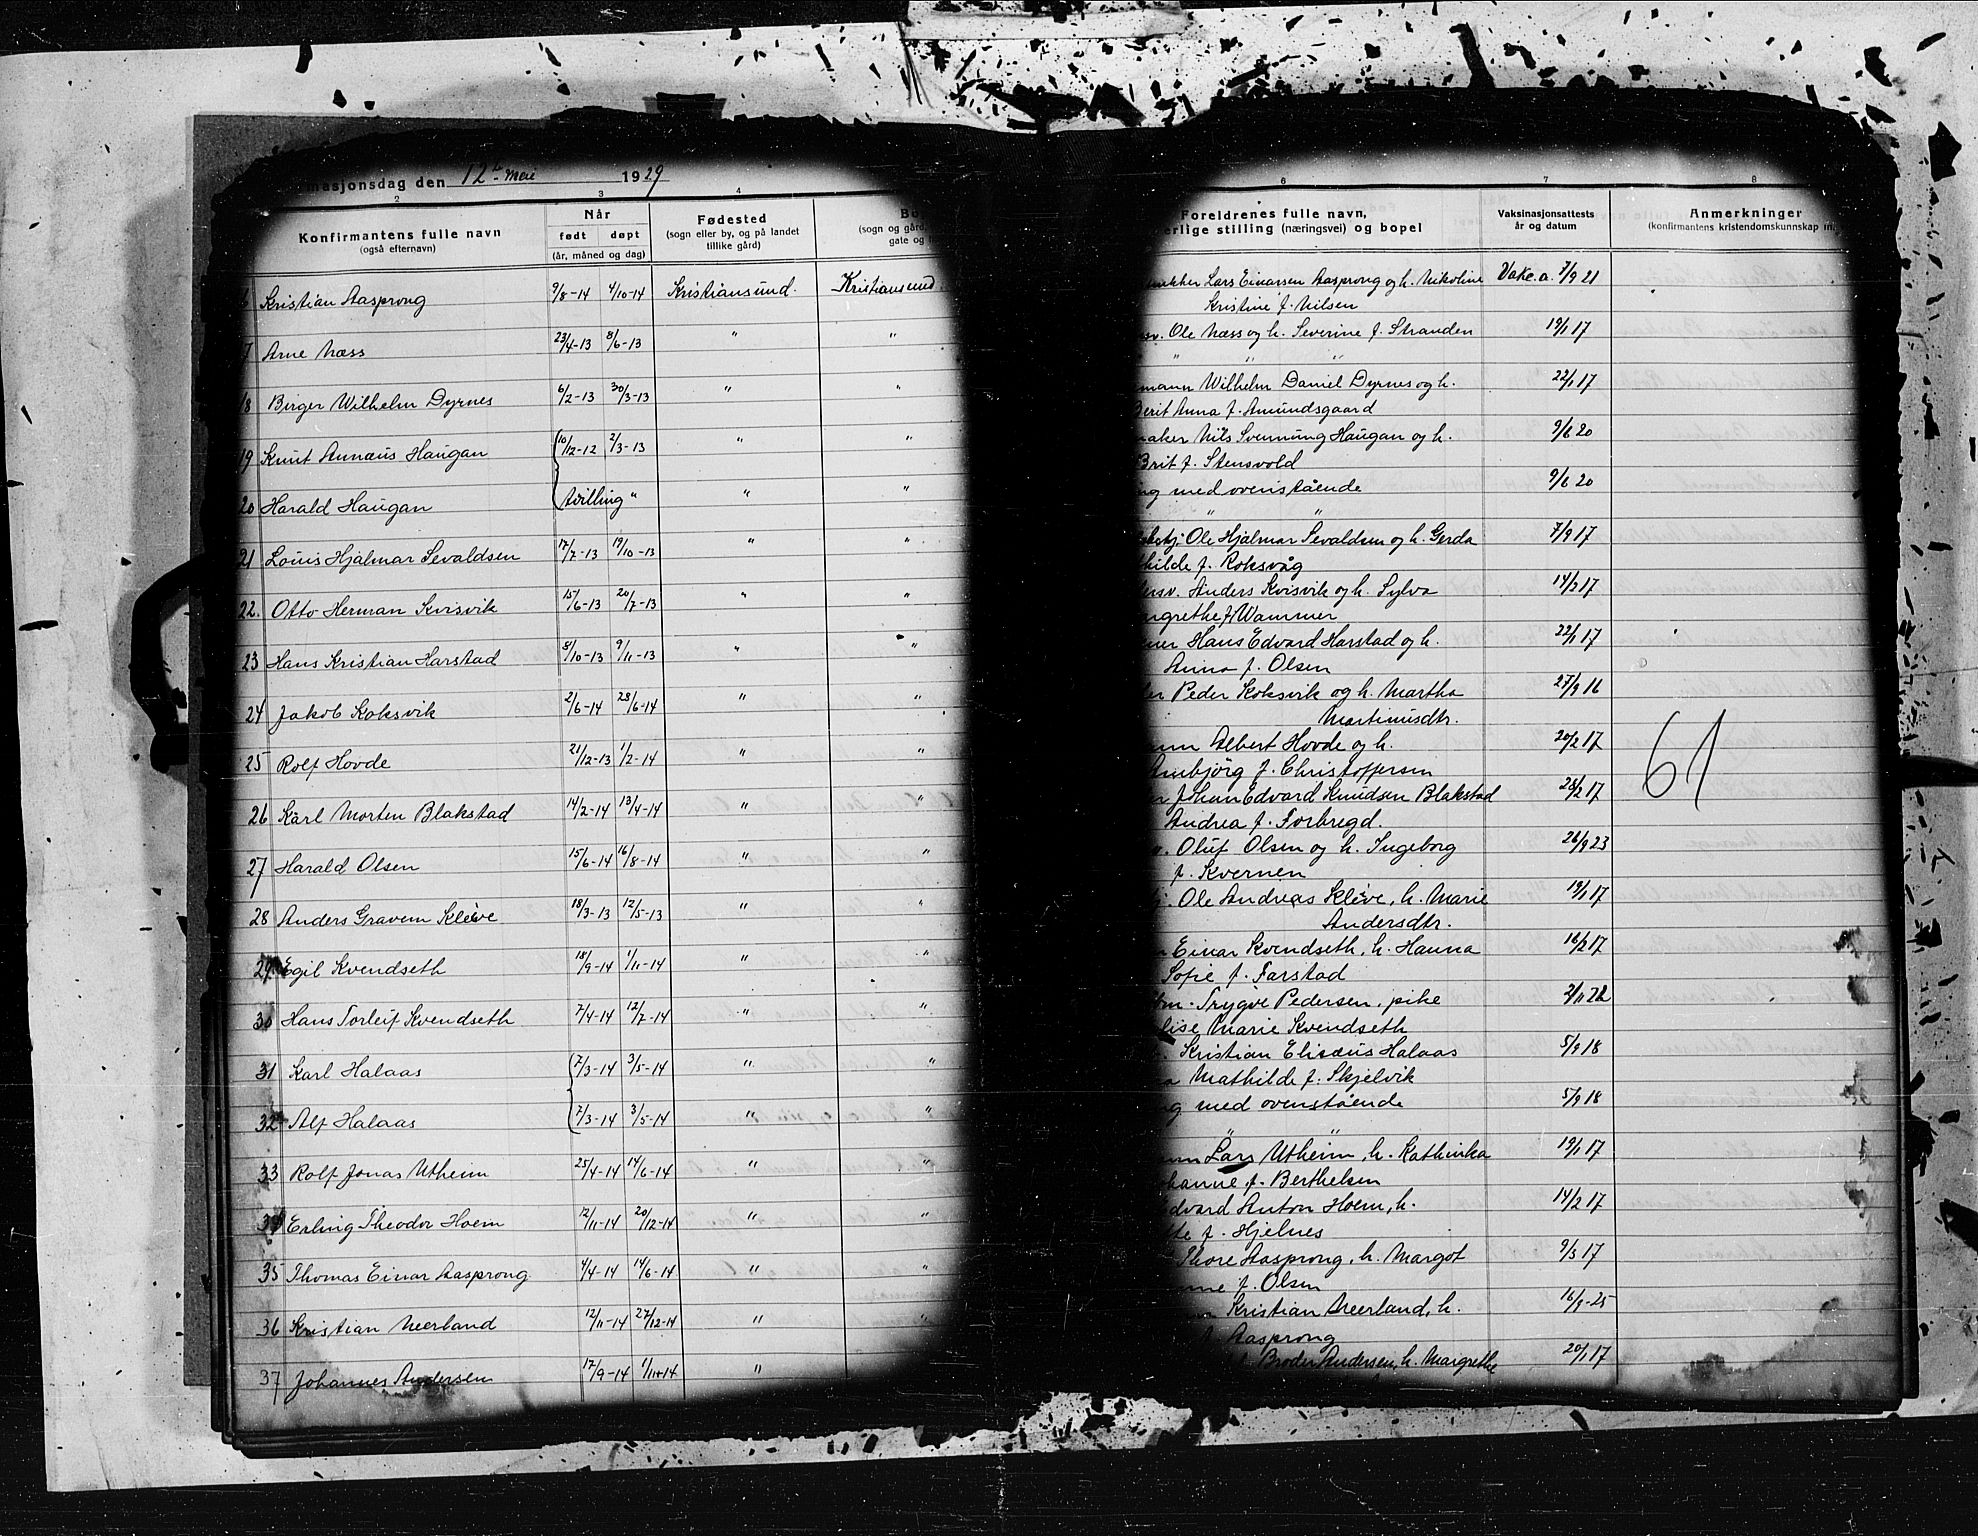 masjonsdag den 12te Mai 1929
2 3 4
Konfirmantens fulle navn
(også efternavn)
Når
født døpt
(år, måned og dag)
Fødested
(sogn eller by, og på landet
tillike gård)
Bo
(sogn og gård,
gate og
6 Kristian Aasprong 9/8-14 4/10-14 Kristiansund. Kristiansund.
7 Arne Næss 23/4-13 8/6-13 " "
18 Birger Wilhelm Dyrnes 6/2-13 30/3-13 " "
19 Knut Annæus Haugan 10/12-12 2/3-13 " "
20 Harald Haugan tvilling " " "
21 Louis Hjalmar Sevaldsen 17/7-13 19/10-13 " "
22. Otto Herman Kvisvik 15/6-13 20/7-13 " "
23 Hans Kristian Harstad 8/10-13 9/11-13 " "
24 Jakob Koksvik 2/6-14 28/6-14 " "
25 Rolf Hovde 21/12-13 1/2-14 " "
26 Karl Morten Blakstad 14/2-14 13/4-14 " "
27 Harald Olsen 15/6-14 16/8-14 " "
28 Anders Gravem Kleive 18/3-13 12/5-13 " "
29 Egil Kvendseth 18/9-14 1/11-14 " "
30 Hans Torleif Kvendseth 7/4-14 12/7-14 " "
31 Karl Halaas 7/3-14 3/5-14 " "
32 Alf Halaas 7/3-14 3/5-14 " "
33 Rolf Jonas Utheim 25/4-14 14/6-14 " "
34 Erling Theodor Hoem 12/11-14 20/12-14 " "
35 Thomas Einar Aasprong 4/4-14 14/6-14 " "
36 Kristian Neerland 12/11-14 27/12-14 " "
37 Johannes Andersen 17/9-14 1/11-14 "
6 7 8
Foreldrenes fulle navn,
erlige stilling (næringsvei) og bopel
Vaksinasjonsattests
år og datum
Anmerkninger
(konfirmantens kristendomskunnskap m.
Lars Einarsen Aasprong og h. Nikoline Vakc.a. 7/9 21
Kristine f. Nilsen
Ole Næss og h. Severine f. Stranden 19/1 17
" " "
mann Wilhelm Daniel Dyrnes og h. 22/1 17
Berit Anna f. Amundsgaard
maker Nils Svennung Haugan og h. 9/6 20
Brit f. Stensvold
ng med ovenstående 9/6 20
" "
Ole Hjalmar Sevaldsen og h. Gerda 7/9 17
hilde f. Roksvåg
Anders Kvisvik og h. Sylva 14/2 17
ngrethe f. Wammer
Hans Edvard Harstad og h. 22/1 17
Anna f. Olsen
er Peder Koksvik og h. Martha 27/9 16
Martinusdtr.
Albert Hovde og h. 20/2 17
Anbjörg f. Christoffersen
Johan Edvard Knudsen Blakstad 28/2 17
Andrea f. Forbregd.
Oluf Olsen og h. Ingeborg 26/9 23
f. Kvernen
Ole Andreas Kleive, h. Marie 19/1 17
Andersdtr.
Einar Kvendseth, h. Hanna 16/2 17
Sofie f. Farstad
Trygve Pedersen, pike 2/11 22
lise Marie Kvendseth
Kristian Elisæus Halaas 5/9 18
Mathilde f. Skjelvik
ng med ovenstående 5/9 18
" "
Lars Utheim, h. Kathinka 19/1 17
hanne f. Berthelsen
dvard Anton Hoem, h. 14/2 17
f. Hjelnes
Thore Aasprong, h. Margot 9/3 17
f. Olsen
Kristian Neerland, h. 16/9-25
f. Aasprong
Broder Andersen, h. Margrethe 20/1 17
61